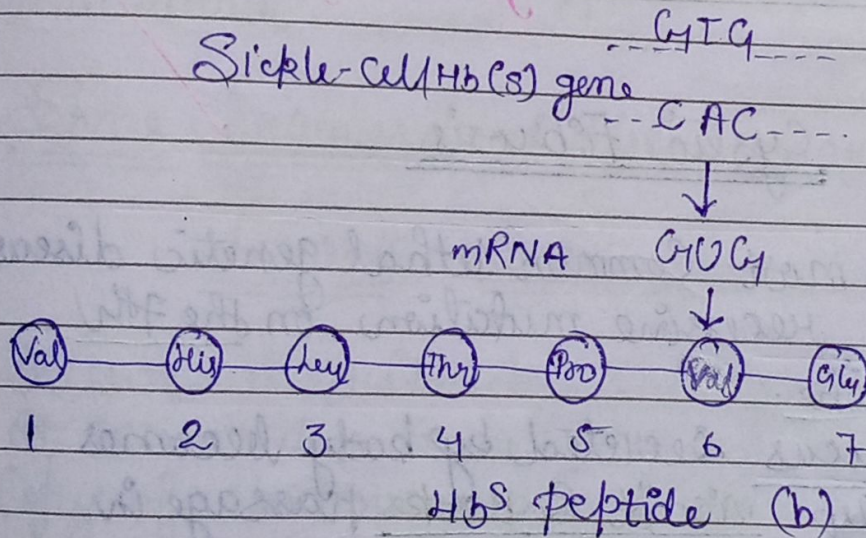 --- GTG ----
Sickle-Cell/Hb(s) gene
-- CAC ----
mRNA GUG
Val His Leu Thr Pro Val Glu
1 2 3 4 5 6 7
HbS peptide (b)